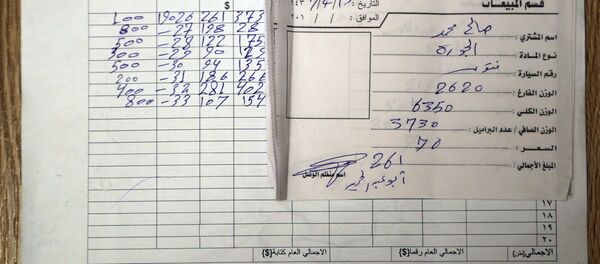 قسم المبيعات
التاريخ :
الموافق : / / ٢٠١
اسم المشتري : صالح محمد
نوع المادة :
رقم السيارة :
الوزن الفارغ : 2620
الوزن الكلي : 6350
الوزن الصافي / عدد البراميل : 3730
السعر : 70
المبلغ الأجمالي : 261
اسم منظم الوصل
$
100 19026 261 373
800 -27 198 28
500 -28 122 175
300 -29 90
500 -30 94 135
200 -31 186 266
400 -32 281 402
800 -33 107 154
١٧
١٨
١٩
٢٠
الاجمالي (طن)
الاجمالي العام رقما {$}
الاجمالي العام كتابة {$}